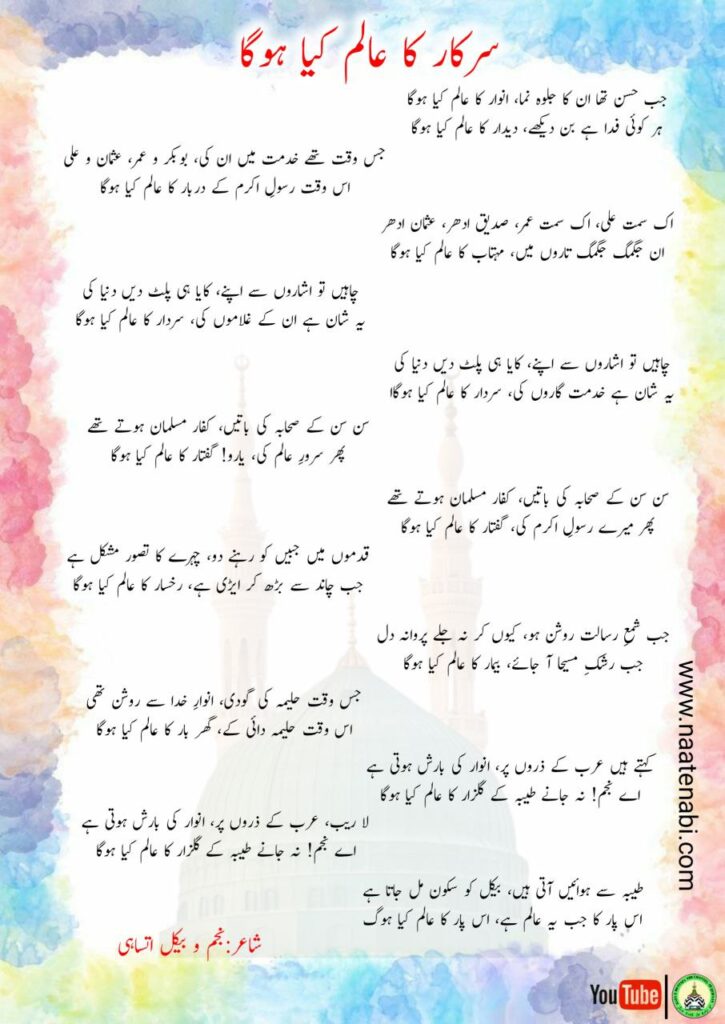 سرکار کا عالم کیا ہوگا
جب حسن تھا ان کا جلوہ نما، انوار کا عالم کیا ہوگا
ہر کوئی فدا ہے بن دیکھے، دیدار کا عالم کیا ہوگا
جس وقت تھے خدمت میں ان کی، بوبکر و عمر، عثمان و علی
اس وقت رسولِ اکرم کے دربار کا عالم کیا ہوگا
اک سمت علی، اک سمت عمر، صدیق ادھر، عثمان ادھر
ان جگمگ جگمگ تاروں میں، مہتاب کا عالم کیا ہوگا
چاہیں تو اشاروں سے اپنے، کایا ہی پلٹ دیں دنیا کی
یہ شان ہے ان کے غلاموں کی، سردار کا عالم کیا ہوگا
چاہیں تو اشاروں سے اپنے، کایا ہی پلٹ دیں دنیا کی
یہ شان ہے خدمت گاروں کی، سردار کا عالم کیا ہوگاا
سن سن کے صحابہ کی باتیں، کفار مسلمان ہوتے تھے
پھر سرورِ عالم کی، یارو! گفتار کا عالم کیا ہوگا
سن سن کے صحابہ کی باتیں، کفار مسلمان ہوتے تھے
پھر میرے رسولِ اکرم کی، گفتار کا عالم کیا ہوگا
قدموں میں جبیں کو رہنے دو، چہرے کا تصور مشکل ہے
جب چاند سے بڑھ کر ایڑی ہے، رخسار کا عالم کیا ہوگا
جب شمعِ رسالت روشن ہو، کیوں کر نہ جلے پروانہ دل
جب رشکِ مسیحا آ جائے، بیمار کا عالم کیا ہوگا
جس وقت حلیمہ کی گودی، انوارِ خدا سے روشن تھی
اس وقت حلیمہ دائی کے، گھر بار کا عالم کیا ہوگا
کہتے ہیں عرب کے ذروں پر، انوار کی بارش ہوتی ہے
اے نجم! نہ جانے طیبہ کے گلزار کا عالم کیا ہوگا
لا ریب، عرب کے ذروں پر، انوار کی بارش ہوتی ہے
اے نجم! نہ جانے طیبہ کے گلزار کا عالم کیا ہوگا
طیبہ سے ہوائیں آتی ہیں، بیکل کو سکون مل جاتا ہے
اس پار کا جب یہ عالم ہے، اس پار کا عالم کیا ہوگ
شاعر:نجم و بیکل اتساہی
www.naatenabi.com
YouTube